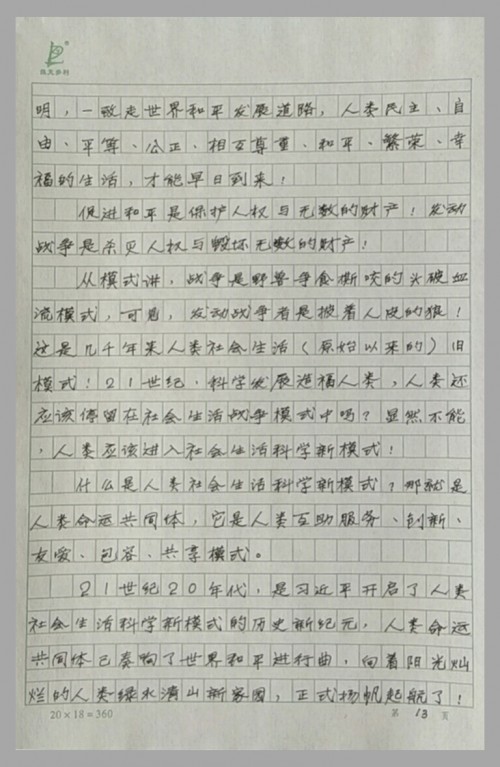 明，一致走世界和平发展道路，人类民主、自
由、平等、公正、相互尊重、和平、繁荣、幸
福的生活，才能早日到来！
促进和平是保护人权与无数的财产！发动
战争是杀灭人权与毁坏无数的财产！
从模式讲，战争是野兽争食撕咬的头破血
流模式，可见，发动战争者是披着人皮的狼！
这是几千年来人类社会生活（原始以来的）旧
模式！21世纪，科学发展造福人类，人类还
应该停留在社会生活战争模式中吗？显然不能
，人类应该进入社会生活科学新模式！
什么是人类社会生活科学新模式？那就是
人类命运共同体，它是人类互助服务、创新、
友爱、包容、共享模式。
21世纪20年代，是习近平开启了人类
社会生活科学新模式的历史新纪元，人类命运
共同体已奏响了世界和平进行曲，向着阳光灿
烂的人类绿水演山新家园，正式扬帆起航了！
20×18=360 第 13 页